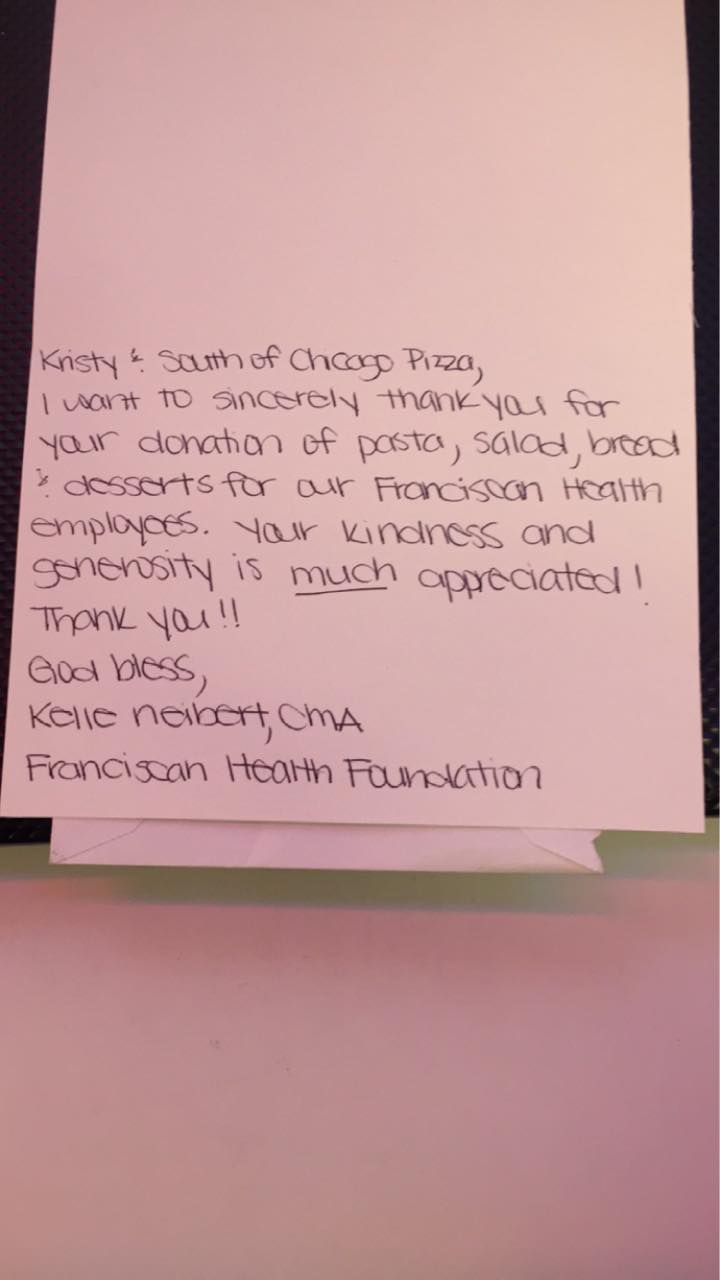 Kristy & South of Chicago Pizza,
I want to sincerely thank you for
your donation of pasta, salad, bread
& desserts for our Franciscan Health
employees. Your kindness and
generosity is much appreciated!
Thank you!!
God bless,
Kelle Neibert, CMA
Franciscan Health Foundation